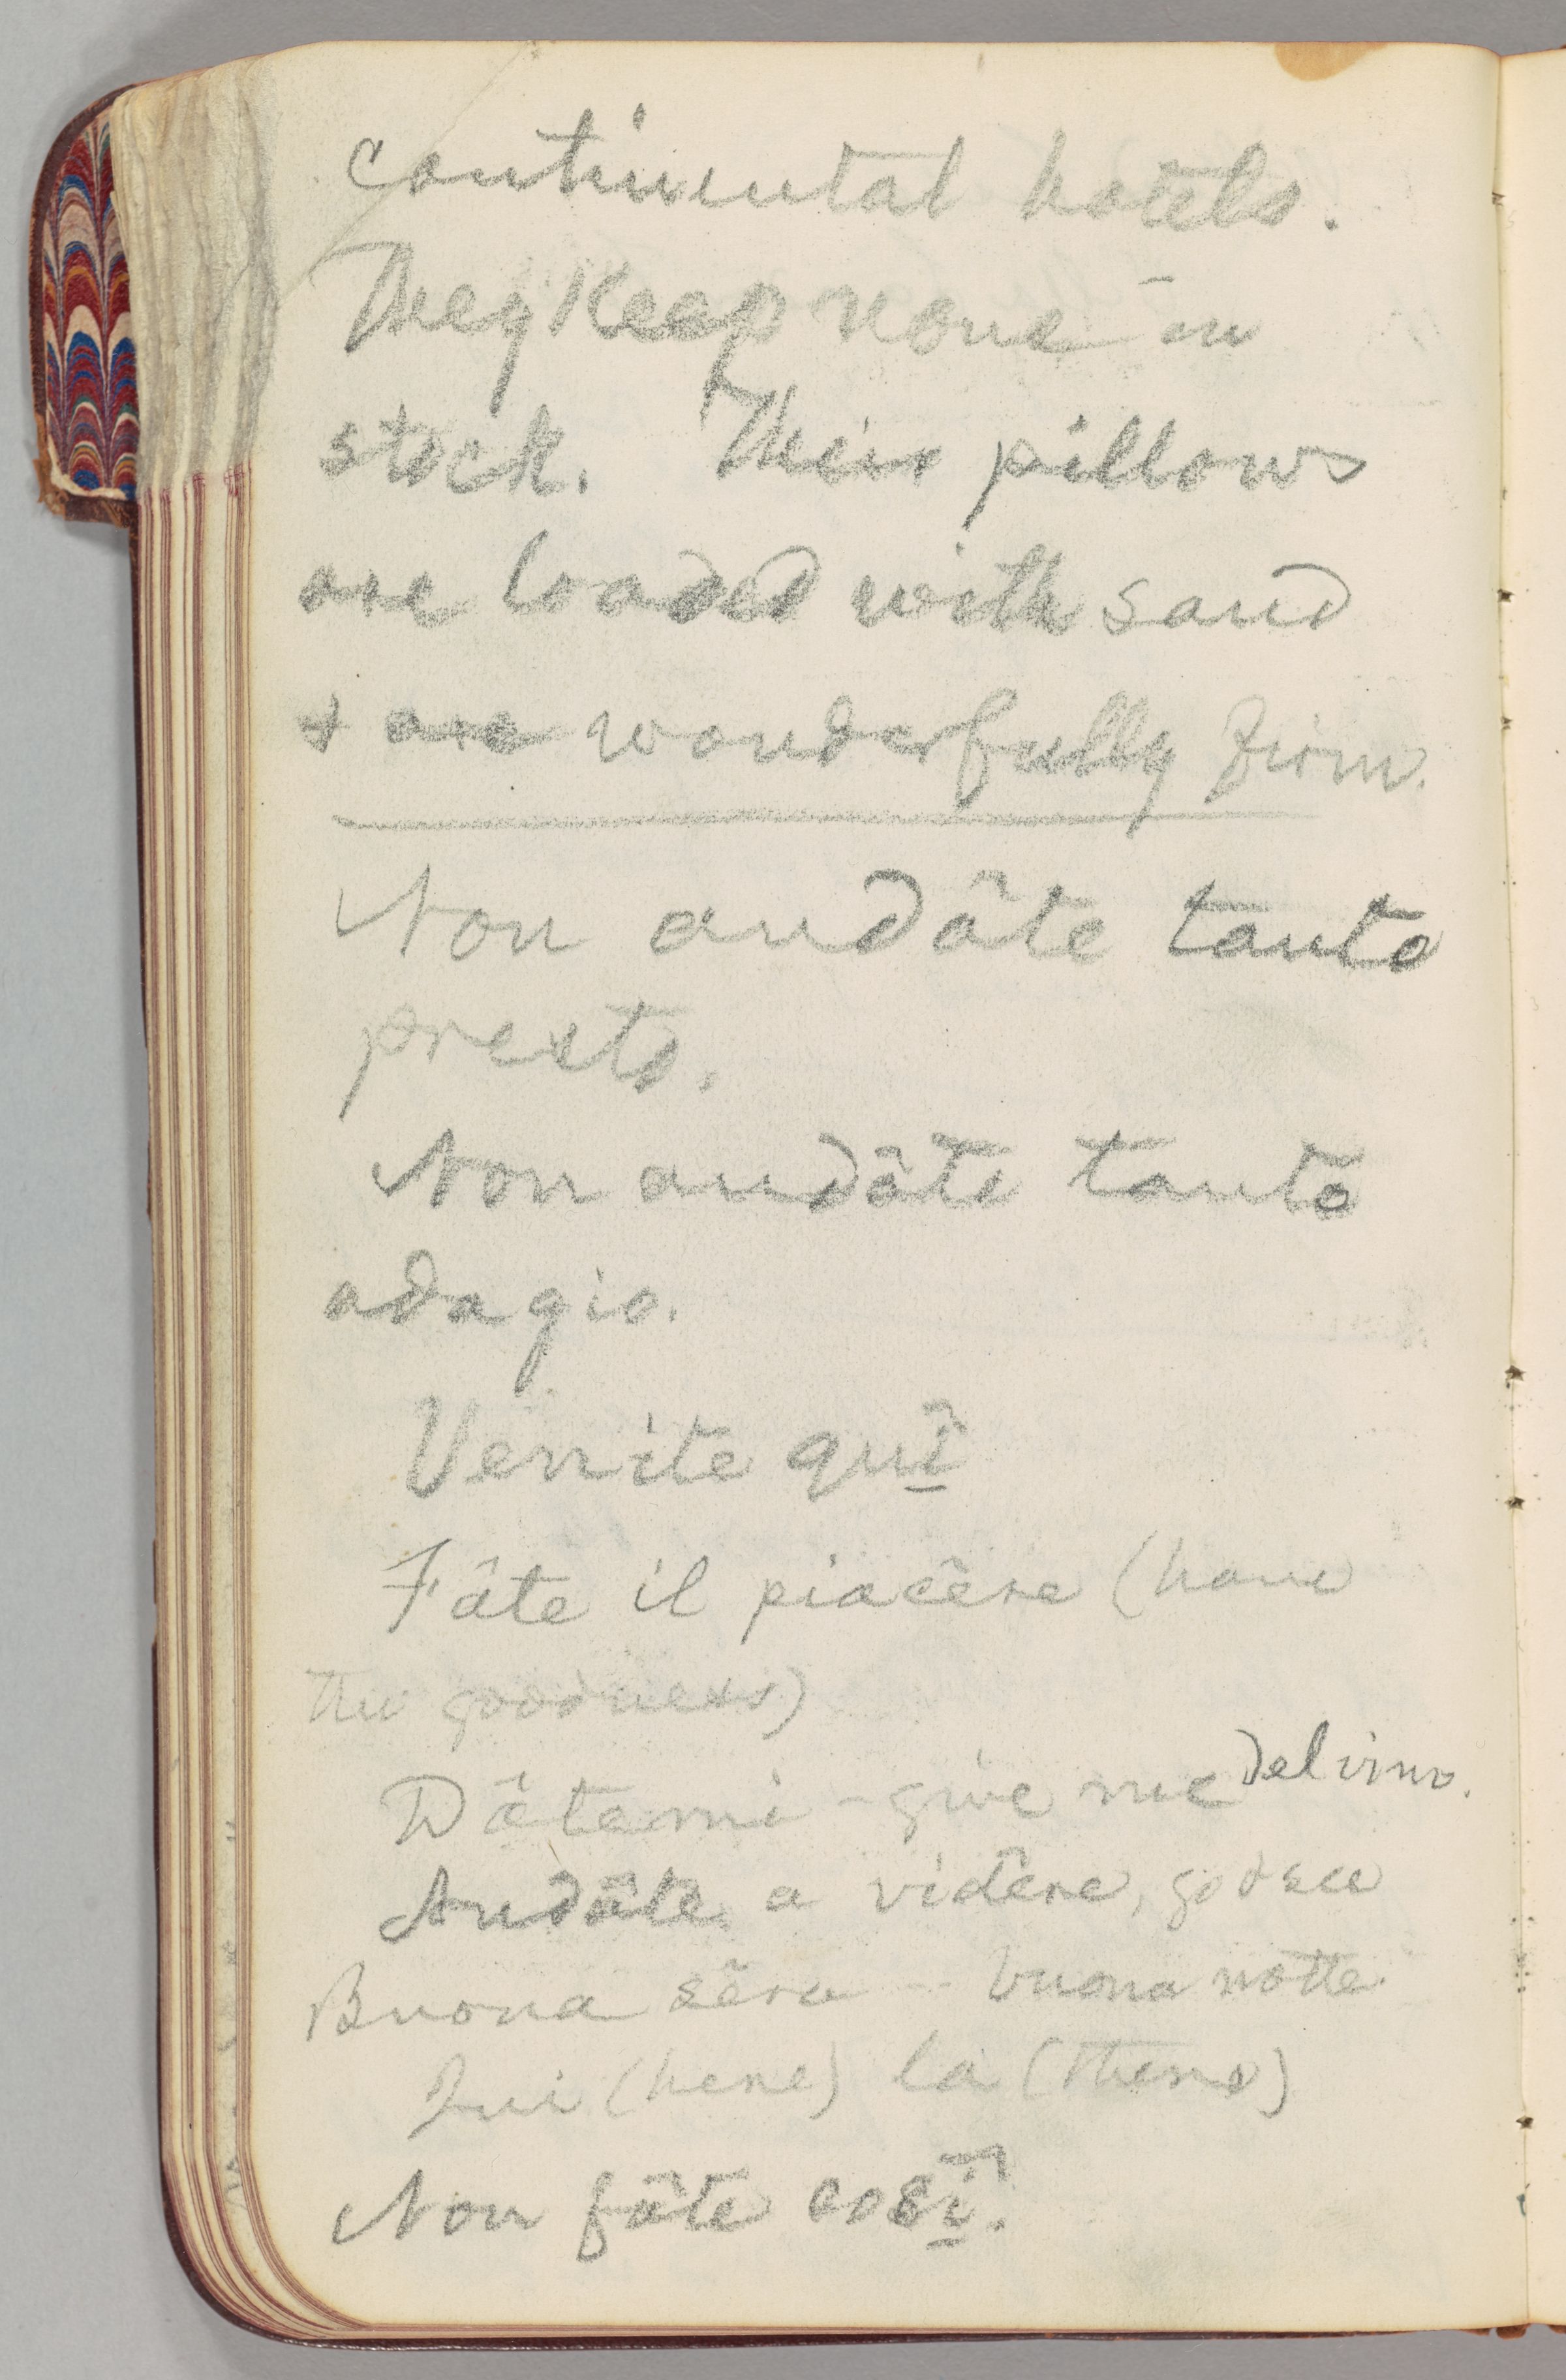 continental hotels.
They keep none in
stock. Their pillows
are loaded with sand
& are wonderfully firm.
Non andâte tanto
presto.
Non andâte tanto
adagio.
Vennite quî
Fâte il piacêre (have
the goodness)
Dâtemi - give me del vino.
Andâte a vidêre, go & see
Buona sêra - buona notte.
Qui (here) la (there)
Non fâte cosî.